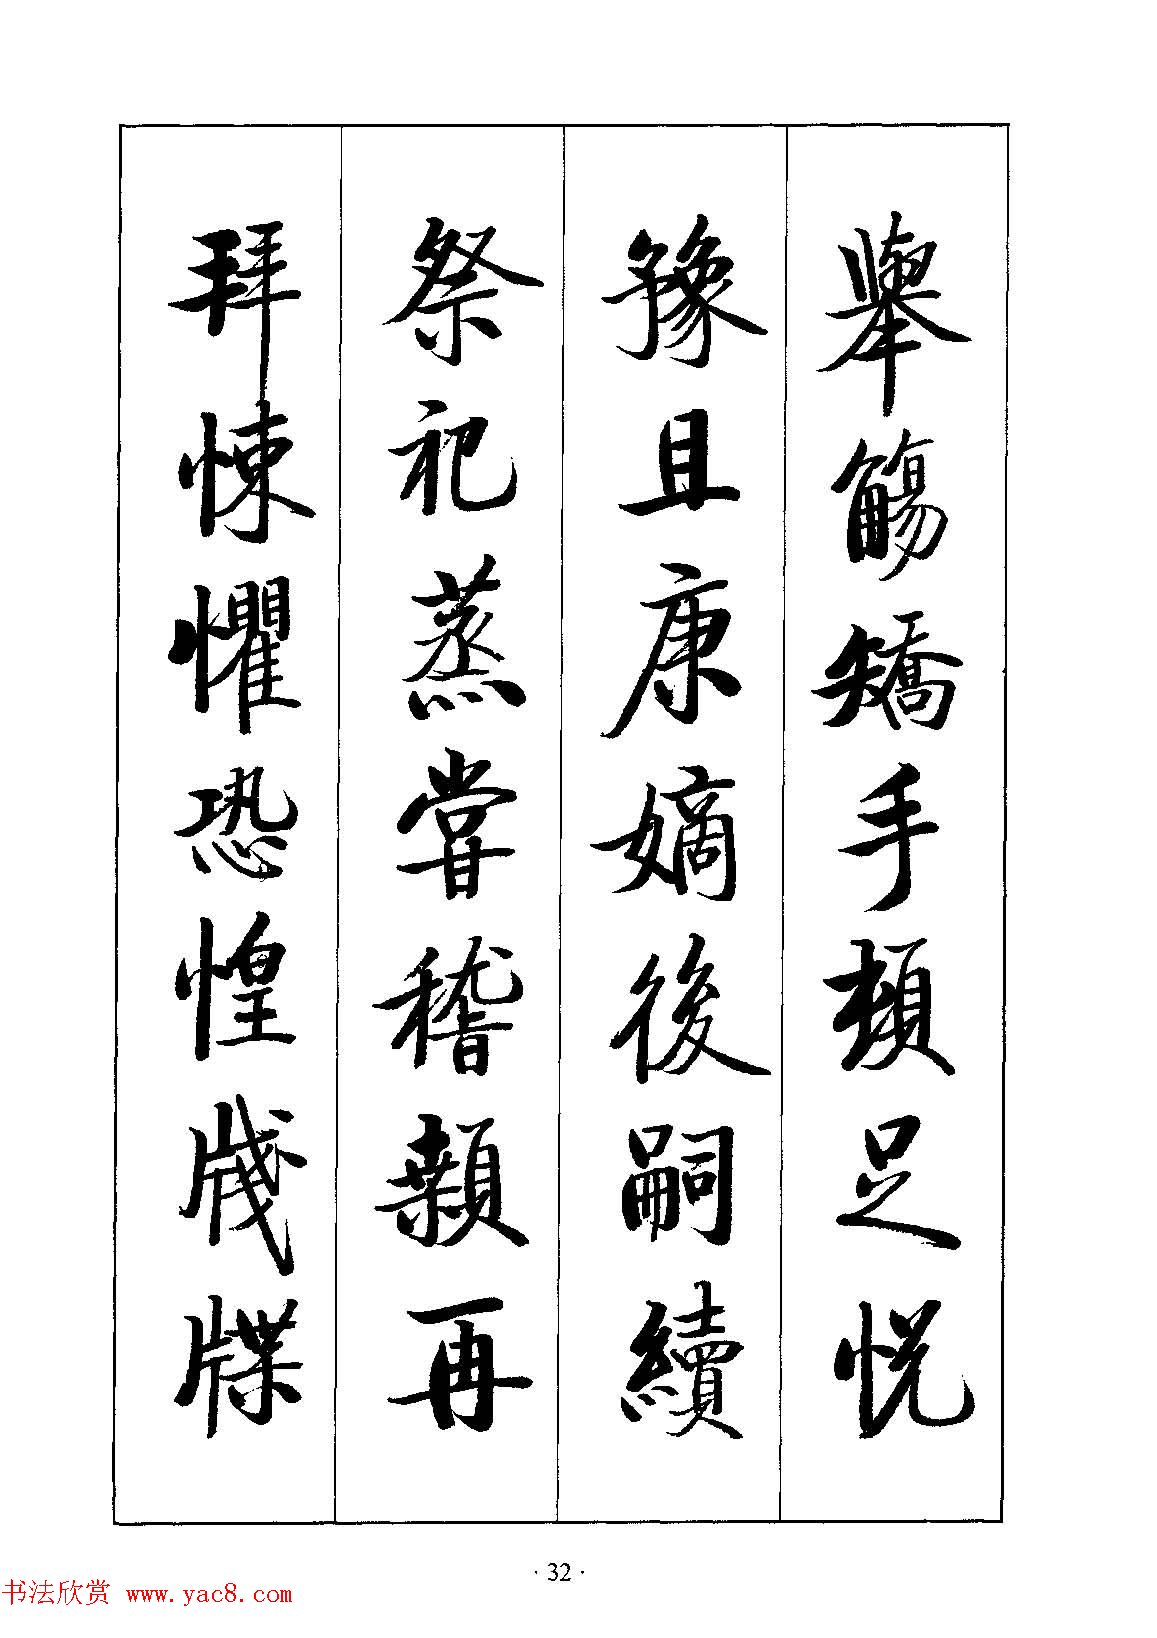 舉觴矯手頓足悅
豫且康嫡後嗣續
祭祀蒸嘗稽顙再
拜悚懼恐惶牋牒
· 32 ·
书法欣赏 www.yac8.com